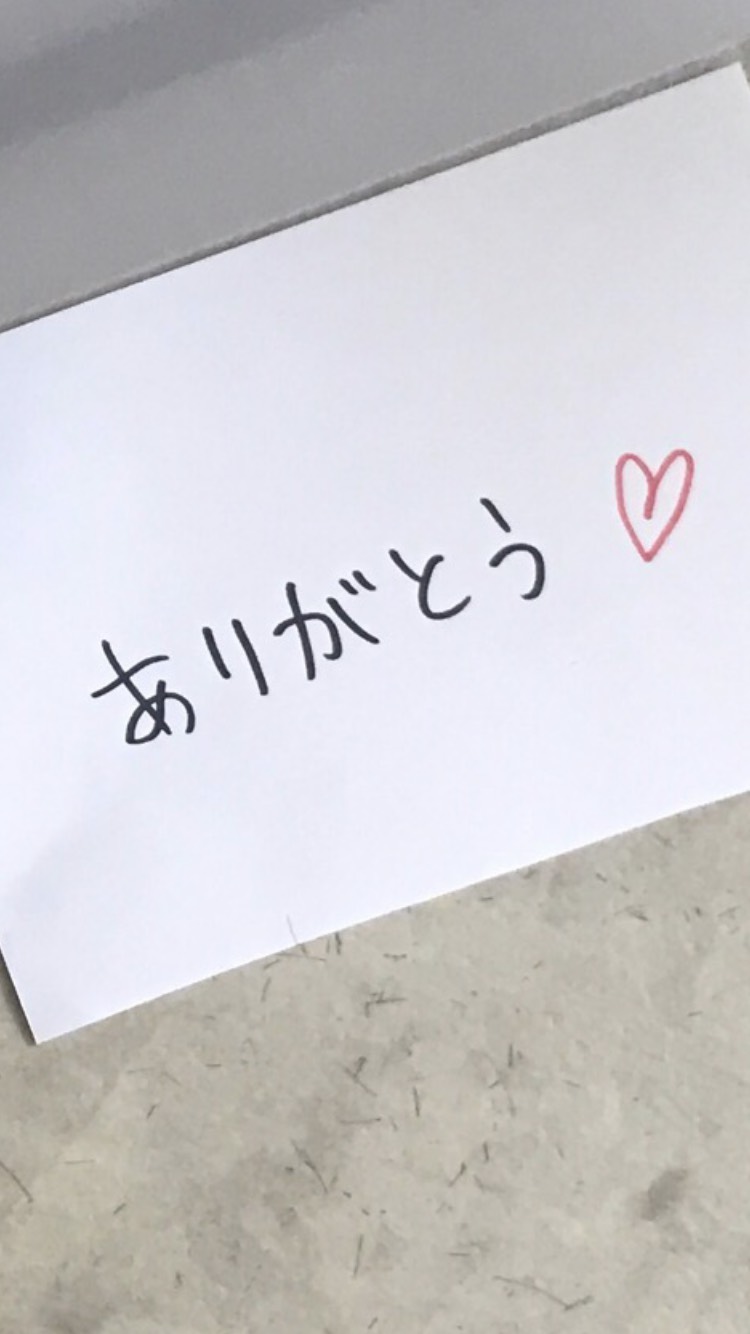 ありがとう ♡